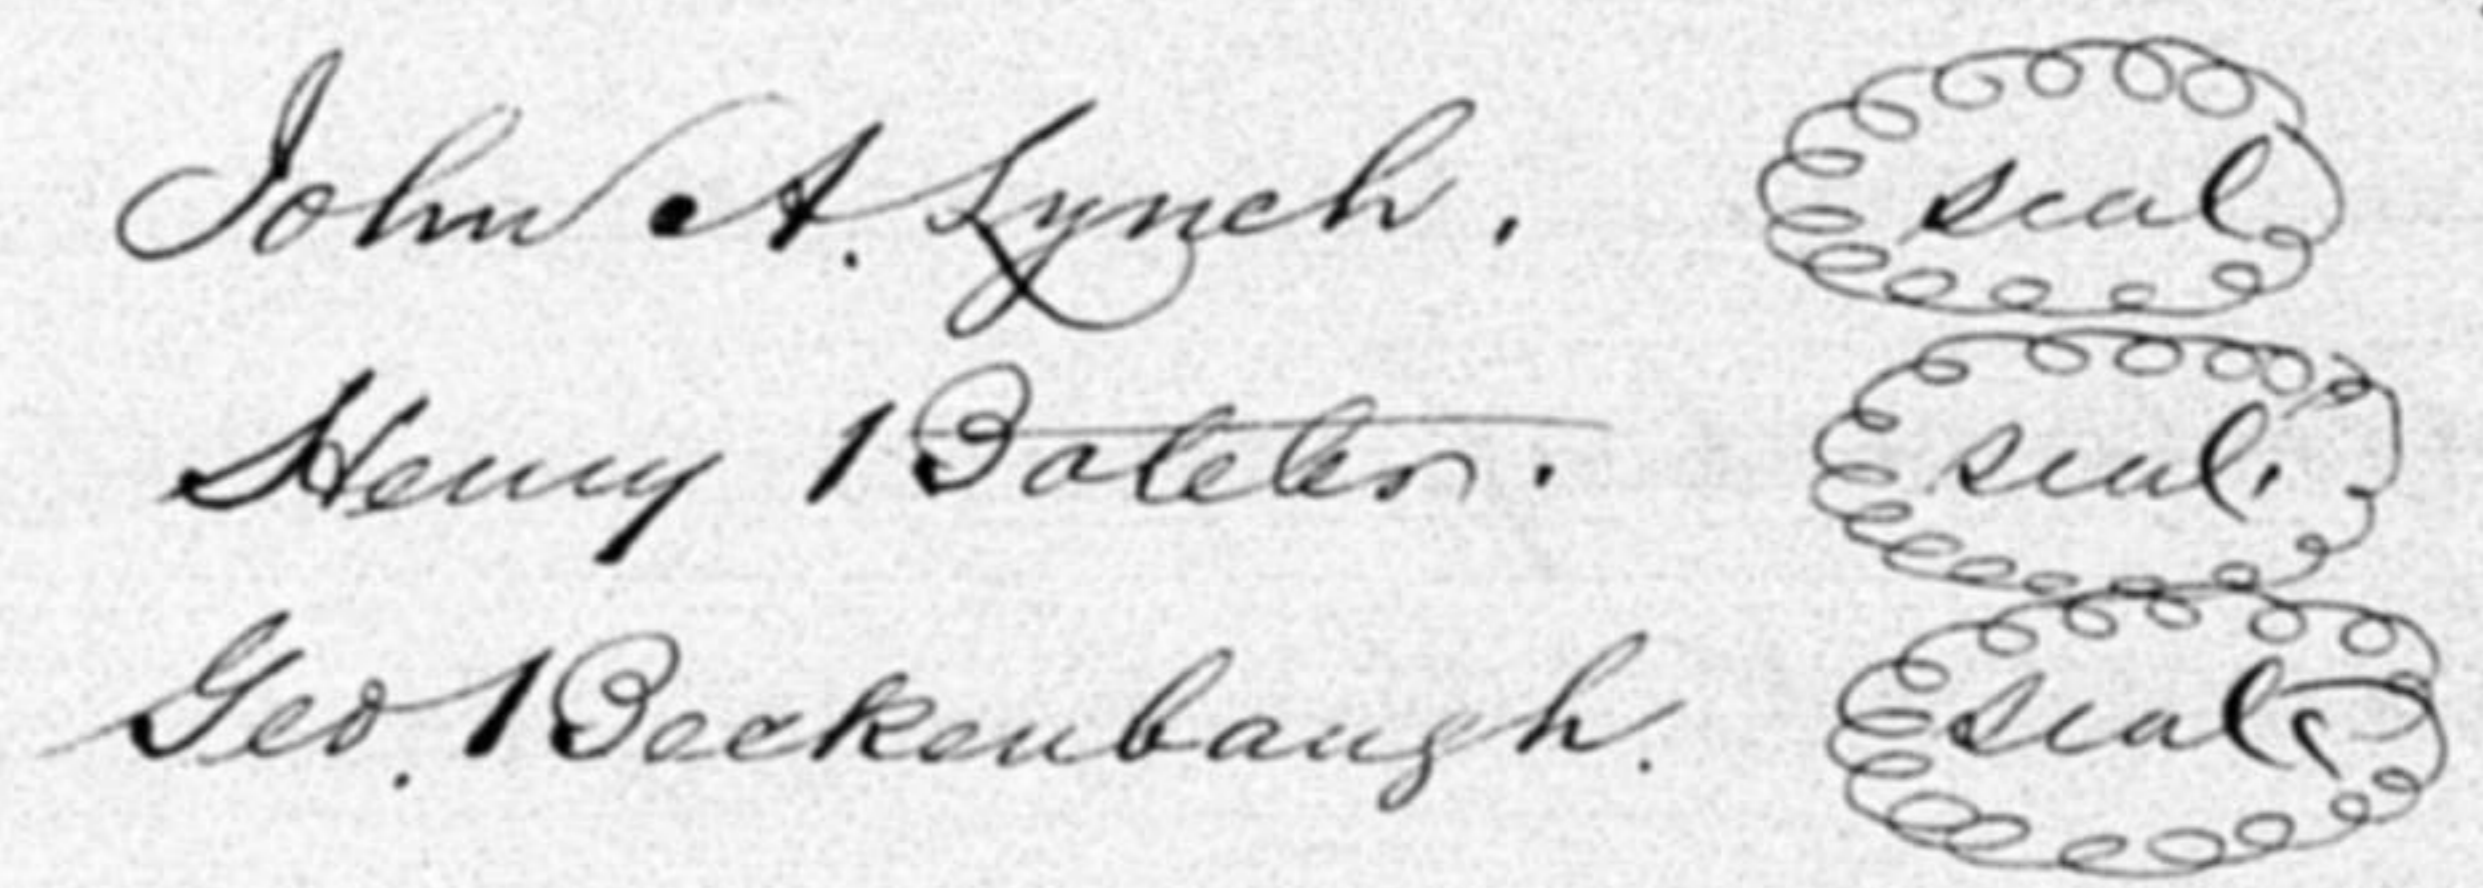 John A. Lynch. seal
Henry Boteler. seal.
Geo. Beckenbaugh. seal